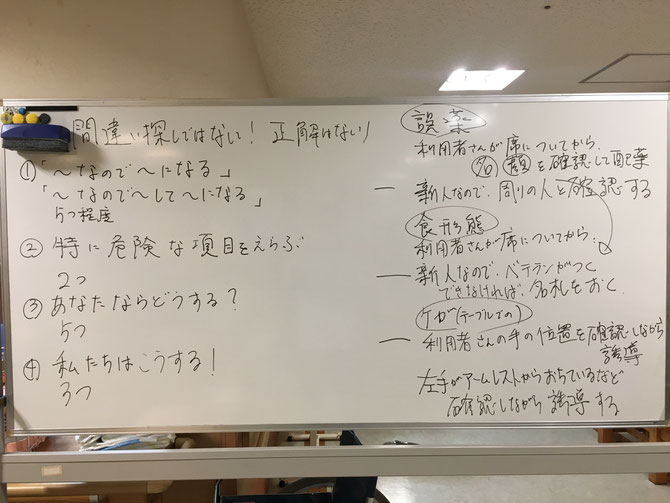 間違い探しではない！ 正解はない！
①「〜なので〜になる」
「〜なので〜して〜になる」
5つ程度
② 特に危険な項目をえらぶ
2つ
③ あなたならどうする？
5つ
④ 私たちはこうする！
3つ
誤薬
利用者さんが席についてから、
名 顔を確認して配薬
― 新人なので、周りの人と確認する
食形態
利用者さんが席についてから、
― 新人なので、ベテランがつく
できなければ、名札をおく
ケガ(テーブルでの)
― 利用者さんの手の位置を確認しながら
誘導
左手がアームレストからおちているなど
確認しながら誘導する